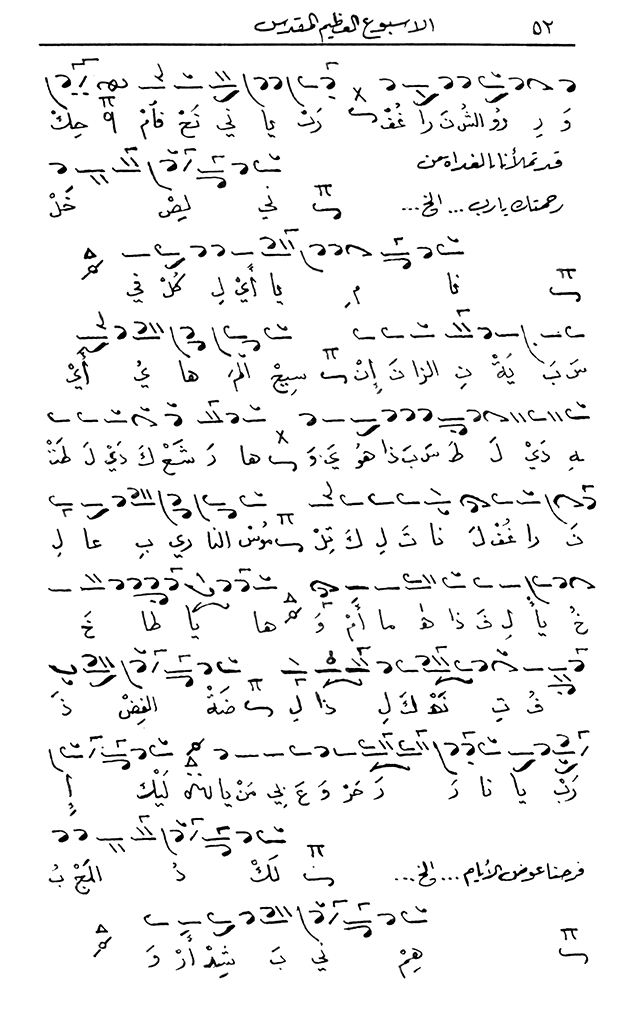 ٥٢ الاسبوع العظيم المقدس
وَ رِ رُو الشُ نَ رَا غُفْ رَبْ يَا ني نَحْ فَأَمْ حِكْ
قد تملأنا بالغداة من
رحمتك يارب ... الخ ... ني لِصْ خَلْ
نَا مِ يَا أَيْ لِ كُلْ في
سَ بَ يَةْ نِ الزَا نَ إِنْ سِيحْ الْمَ هَا يُ أَيْ
بِهِ دَيْ لَ طَ سَ بَ ذَا هُوَ يَ وَ هَا رَ شَعْ كَ دَيْ لَ
نَ رَا غُفْ لَ نَا تَ لِ كَ تِلْ مُوسْ النَا ري بِ عَا لِ
خُ يَأْ لِ فَ ذَا هَ مَا أَمْ وَ هَا يَا طَا خَ
ذَا لِ ضَةْ الفِضْ ذَ
رَبْ يَا نَا رَ عَ ني مَنْ يَا لَيْكْ إِ
فرحنا عوض الأيام ... الخ ... لَكْ دُ المَجْ بُ
هِمْ ني بَ شِدْ أَرْ وَ